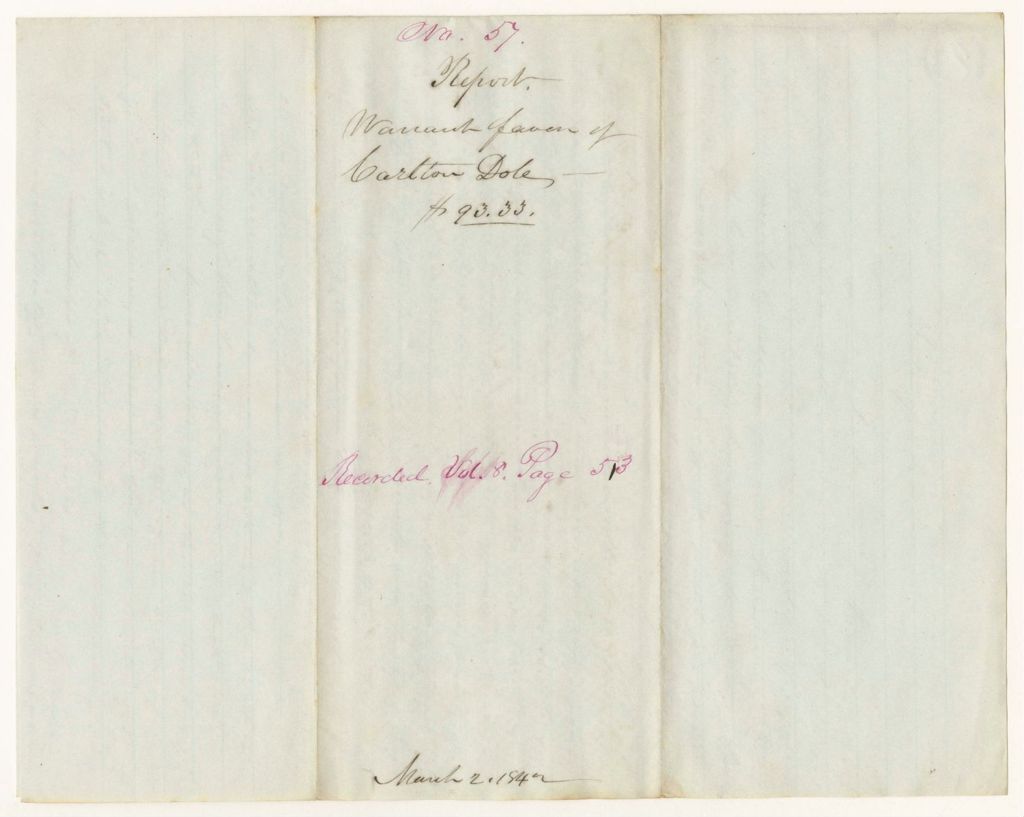 No. 57.
Report.
Warrant favor of
Carlton Dole,
$93.33.
Recorded Vol. 8. Page 513
March 2. 1842